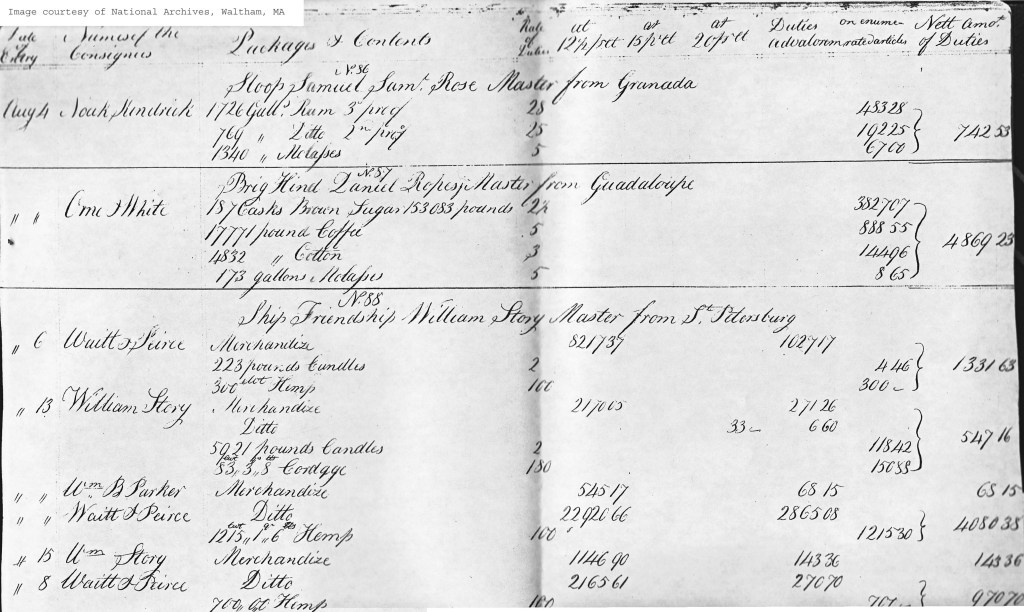 Image courtesy of National Archives, Waltham, MA
Date Names of the Packages & Contents Rate at at at Duties on enume- Nett Amot.
of Entry Consignees of Duties 12½ p ct 15 p ct 20 p ct advalorem rated articles of Duties
No. 86
Sloop Samuel Saml. Rose Master from Granada
Aug 4 Noah Kendrick 1726 Galls. Rum 3d proof 28 483 28
769 " Ditto 2nd proof 25 192 25 742 53
1340 " Molasses 5 67 00
No. 87
Brig Hind Daniel Ropes jr Master from Guadaloupe
" " Orne & White 187 Casks Brown Sugar 153083 pounds 2½ 3827 07
17771 pound Coffee 5 888 55
4832 " Cotton 3 144 96 4869 23
173 gallons Molasses 5 8 65
No. 88
Ship Friendship William Story Master from St. Petersburg
" 6 Waitt & Peirce Merchandize 8217 37 1027 17
223 pounds Candles 2 4 46 1331 63
300 cwt Hemp 100 300 —
" 13 William Story Merchandize 2170 05 271 26
Ditto 33 — 6 60
5921 pounds Candles 2 118 42 547 16
83 " 3 " 8 Cordage 180 150 88
" " Wm B Parker Merchandize 545 17 68 15 68 15
" " Waitt & Peirce Ditto 22920 66 2865 08
1215 " 1 " 6 Hemp 100 1215 30 4080 38
" 15 Wm Story Merchandize 1146 90 143 36 143 36
" 8 Waitt & Peirce Ditto 2165 61 270 70
700 " Hemp 100 700 — 970 70